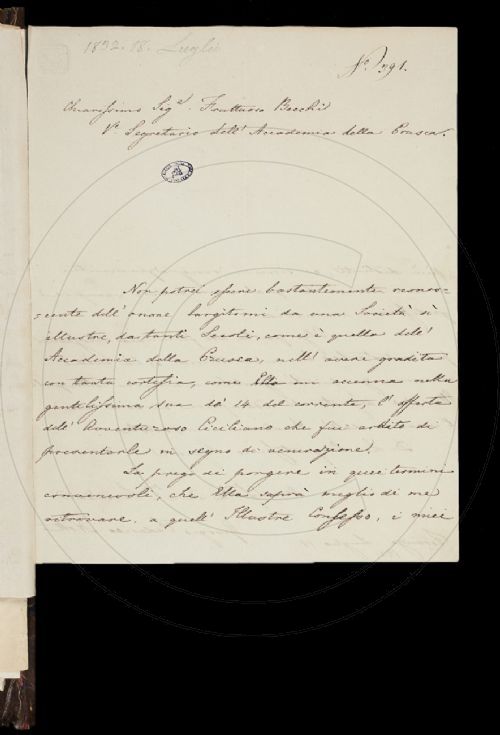 1832. 18. Luglio
N.o 791.
Chiarissimo Sig.r Fruttuoso Becchi
V.e Segretario dell' Accademia della Crusca.
Non potrei essere bastantemente ricono-
-scente dell' onore largitomi da una Società sì
illustre, da tanti Secoli, come è quella dell'
Accademia della Crusca, nell' avere gradita
con tanta cortesia, come Ella mi accenna nella
gentilissima sua de' 14 del corrente, l' offerta
dell' Avventuroso Ciciliano che fui ardito di
presentarle in segno di venerazione.
La prego di porgere in quei termini
convenevoli, che Ella saprà meglio di me
ritrovare, a quell' Illustre Consesso, i miei